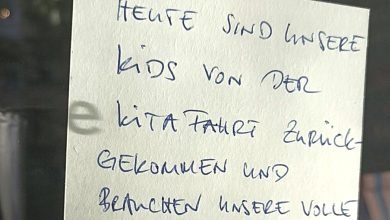 HEUTE SIND UNSERE
KIDS VON DER
e KITAFAHRT ZURÜCK-
GEKOMMEN UND
BRAUCHEN UNSERE VOLLE